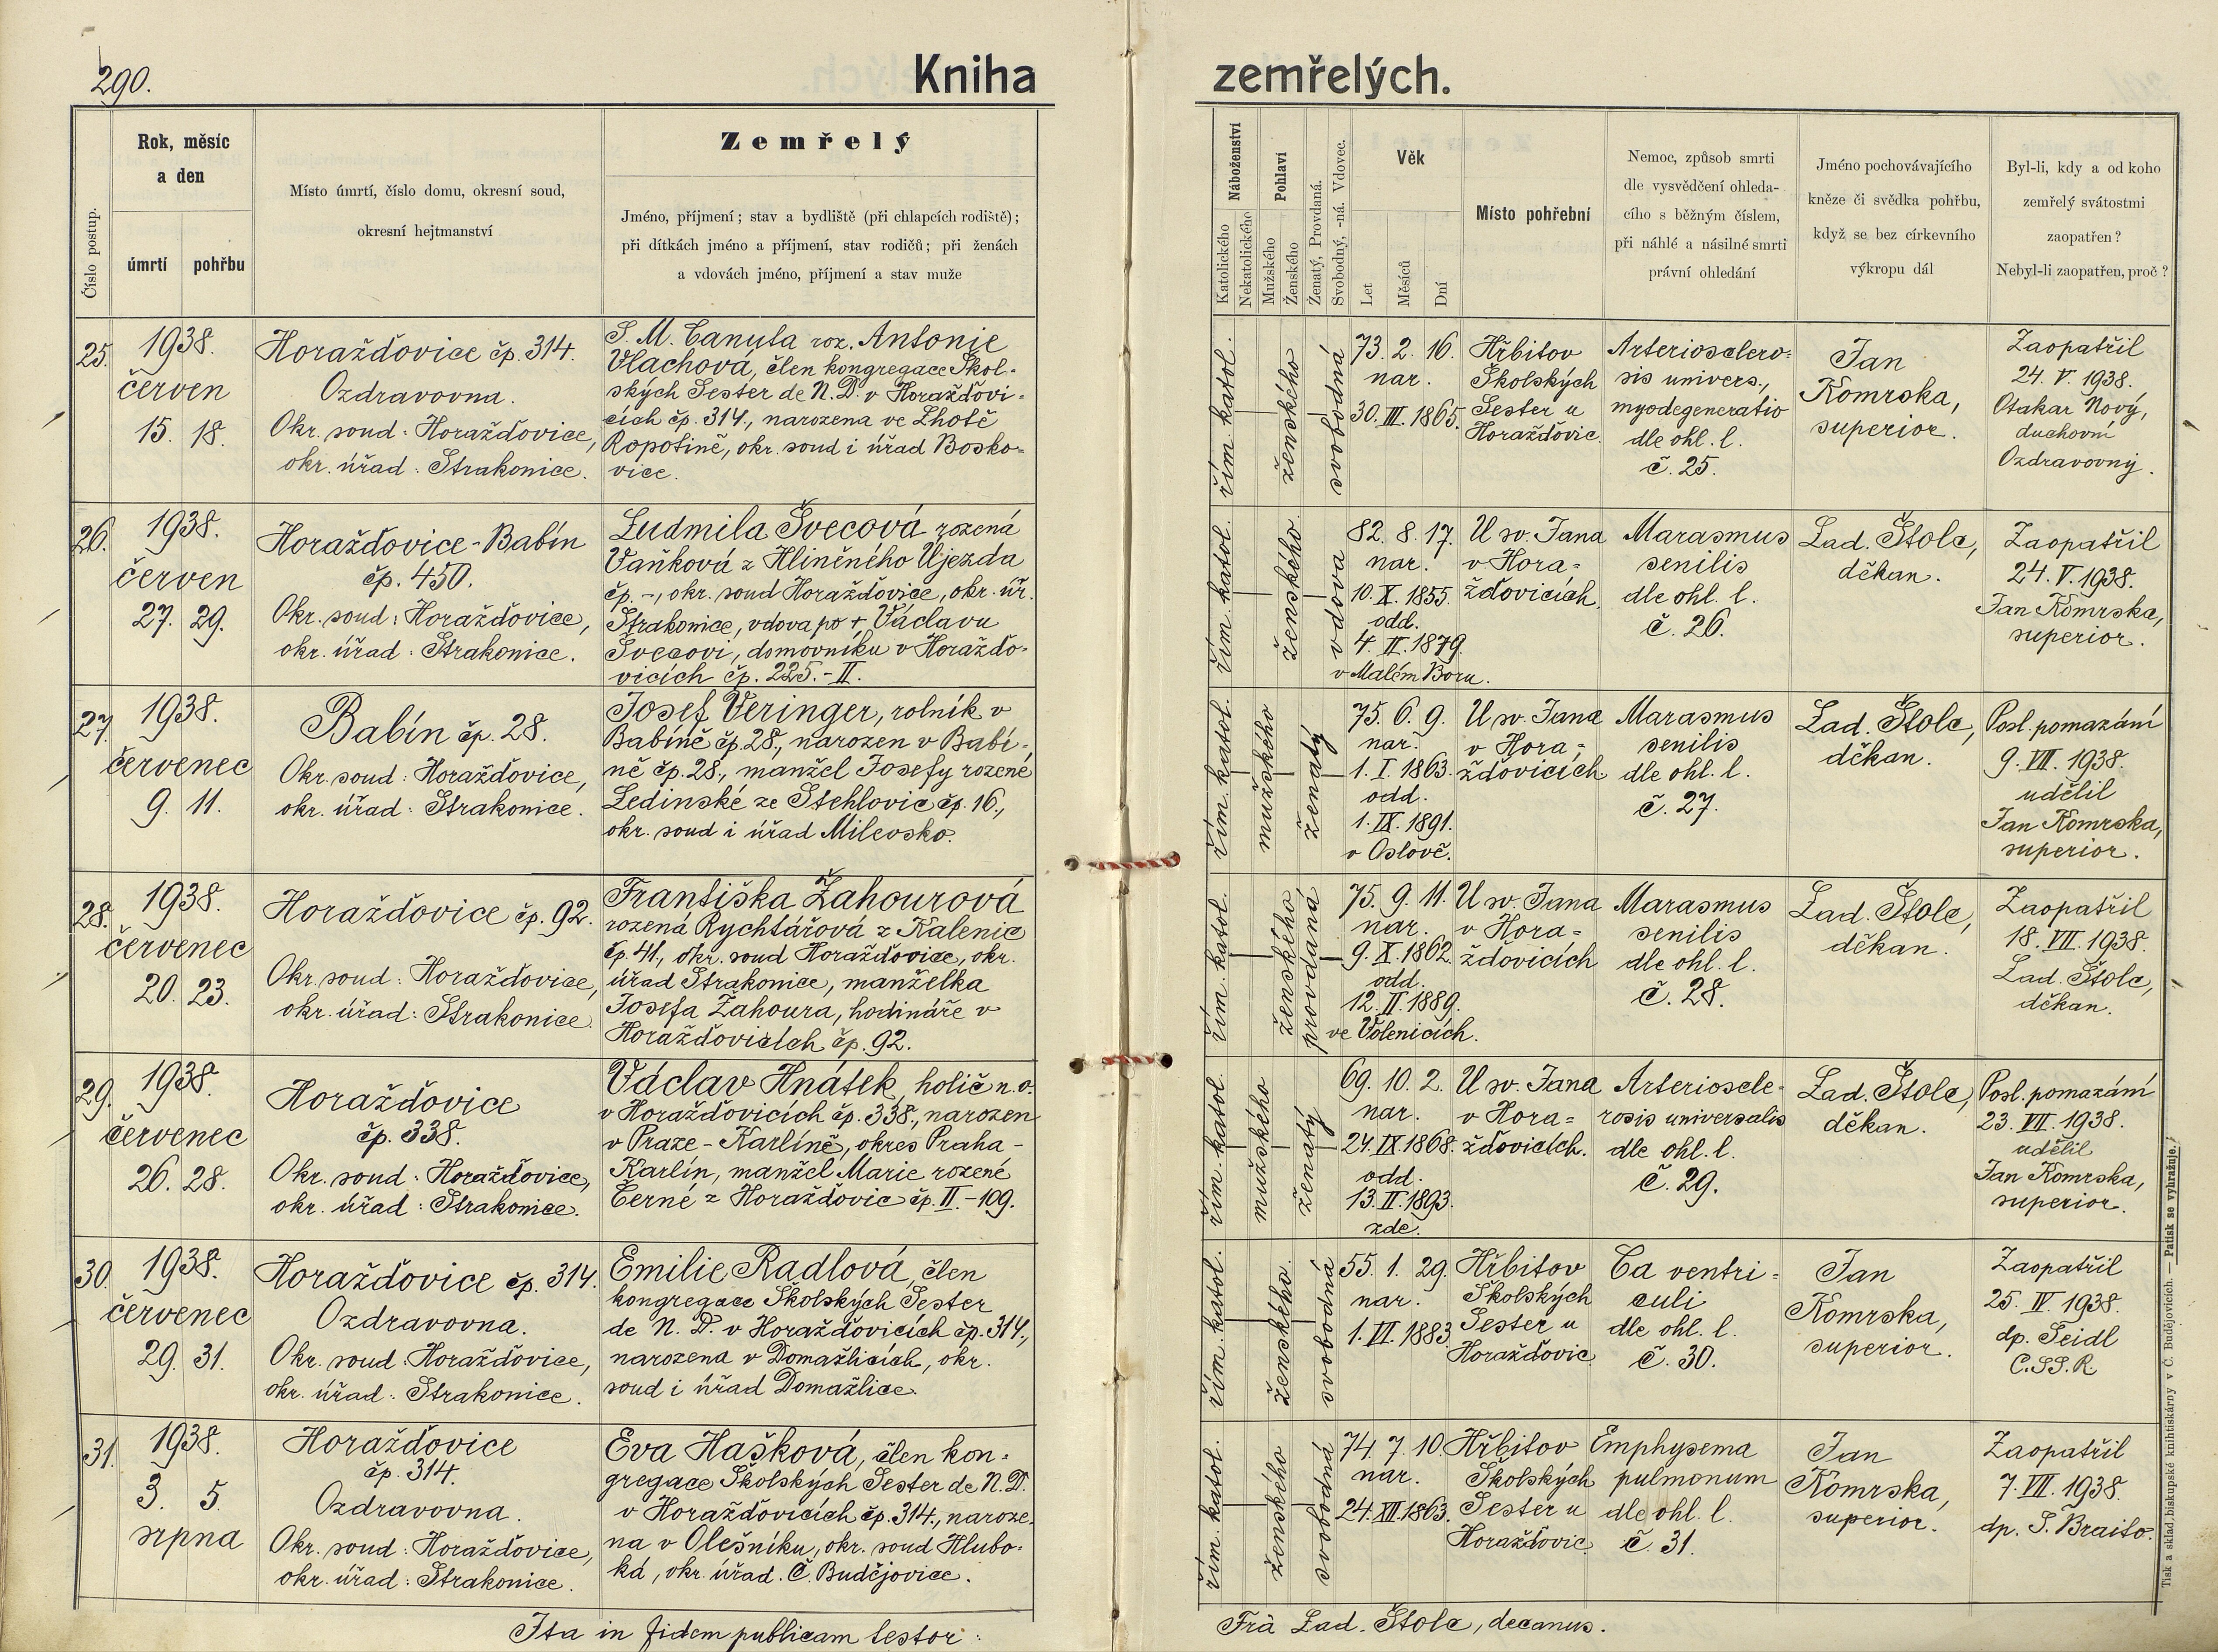 290.
Kniha
zemřelých.
Číslo postup.
Rok, měsíc
a den
úmrtí
pohřbu
Místo úmrtí, číslo domu, okresní soud,
okresní hejtmanství
Zemřelý
Jméno, příjmení; stav a bydliště (při chlapcích rodiště);
při dítkách jméno a příjmení, stav rodičů; při ženách
a vdovách jméno, příjmení a stav muže
Náboženství
Katolického
Nekatolického
Pohlaví
Mužského
Ženského
Ženatý, Provdaná.
Svobodný, -ná. Vdovec.
Věk
Let
Měsíců
Dní
Místo pohřební
Nemoc, způsob smrti
dle vysvědčení ohleda-
cího s běžným číslem,
při náhlé a násilné smrti
právní ohledání
Jméno pochovávajícího
kněze či svědka pohřbu,
když se bez církevního
výkropu dál
Byl-li, kdy a od koho
zemřelý svátostmi
zaopatřen?
Nebyl-li zaopatřen, proč?
25.
1938.
červen
15. 18.
Horažďovice čp. 314.
Ozdravovna.
Okr. soud: Horažďovice,
okr. úřad: Strakonice.
S. M. Canuta roz. Antonie
Vlachová, člen kongregace Škol-
ských Sester de N. D. v Horažďovi-
cích čp. 314., narozena ve Lhotě
Ropotině, okr. soud i úřad Bosko-
vice.
řím. katol.
ženského
svobodná
73. 2. 16.
nar.
30. III. 1865.
Hřbitov
Školských
Sester u
Horažďovic.
Arteriosclero-
sis univers.,
myodegeneratio
dle ohl. l.
č. 25.
Jan
Komrska,
superior.
Zaopatřil
24. V. 1938.
Otakar Nový,
duchovní
Ozdravovny.
26.
1938.
červen
27. 29.
Horažďovice - Babín
čp. 450.
Okr. soud: Horažďovice,
okr. úřad: Strakonice.
Ludmila Švecová rozená
Vaňková z Hliněného Újezda
čp. -, okr. soud Horažďovice, okr. úř.
Strakonice, vdova po + Václavu
Švecovi, domovníku v Horažďo-
vicích čp. 225.-II.
řím. katol.
ženského.
vdova
82. 8. 17.
nar.
10. X. 1855.
odd.
4. II. 1879.
v Malém Boru.
U sv. Jana
v Hora-
žďovicích.
Marasmus
senilis
dle ohl. l.
č. 26.
Lad. Štolc,
děkan.
Zaopatřil
24. V. 1938.
Jan Komrska,
superior.
27.
1938.
červenec
9. 11.
Babín čp. 28.
Okr. soud: Horažďovice,
okr. úřad: Strakonice.
Josef Veringer, rolník v
Babíně čp. 28., narozen v Babí-
ně čp. 28., manžel Josefy rozené
Ledinské ze Stehlovic čp. 16.,
okr. soud i úřad Milevsko.
řím. katol.
mužského
ženatý
75. 6. 9.
nar.
1. I. 1863.
odd.
1. IX. 1891.
v Oslově.
U sv. Jana
v Hora-
žďovicích
Marasmus
senilis
dle ohl. l.
č. 27.
Lad. Štolc,
děkan.
Posl. pomazání
9. VII. 1938.
udělil
Jan Komrska,
superior.
28.
1938.
červenec
20. 23.
Horažďovice čp. 92.
Okr. soud: Horažďovice,
okr. úřad: Strakonice.
Františka Žahourová
rozená Rychtářová z Kalenic
čp. 41., okr. soud Horažďovice, okr.
úřad Strakonice, manželka
Josefa Žahoura, hodináře v
Horažďovicích čp. 92.
řím. katol.
ženského
provdaná
75. 9. 11.
nar.
9. X. 1862.
odd.
12. II. 1889.
ve Volenicích.
U sv. Jana
v Hora-
žďovicích
Marasmus
senilis
dle ohl. l.
č. 28.
Lad. Štolc,
děkan.
Zaopatřil
18. VII. 1938.
Lad. Štolc,
děkan.
29.
1938.
červenec
26. 28.
Horažďovice
čp. 338.
Okr. soud: Horažďovice,
okr. úřad: Strakonice.
Václav Hnátek, holič n. o.
v Horažďovicích čp. 338., narozen
v Praze - Karlíně, okres Praha -
Karlín, manžel Marie rozené
Černé z Horažďovic čp. II.-109.
řím. katol.
mužského
ženatý
69. 10. 2.
nar.
24. IX. 1868.
odd.
13. II. 1893.
zde.
U sv. Jana
v Hora-
žďovicích.
Arterioscle-
rosis universalis
dle ohl. l.
č. 29.
Lad. Štolc,
děkan.
Posl. pomazání
23. VII. 1938.
udělil
Jan Komrska,
superior.
30.
1938.
červenec
29. 31.
Horažďovice čp. 314.
Ozdravovna.
Okr. soud: Horažďovice,
okr. úřad: Strakonice.
Emilie Radlová, člen
kongregace Školských Sester
de N. D. v Horažďovicích čp. 314.,
narozena v Domažlicích, okr.
soud i úřad Domažlice.
řím. katol.
ženského.
svobodná
55. 1. 29.
nar.
1. VI. 1883.
Hřbitov
Školských
Sester u
Horažďovic
Ca ventri-
culi
dle ohl. l.
č. 30.
Jan
Komrska,
superior.
Zaopatřil
25. IV. 1938.
dp. Seidl
C.SS.R.
31.
1938.
3. 5.
srpna
Horažďovice
čp. 314.
Ozdravovna.
Okr. soud: Horažďovice,
okr. úřad: Strakonice.
Eva Hašková, člen kon-
gregace Školských Sester de N. D.
v Horažďovicích čp. 314., naroze-
na v Olešníku, okr. soud Hlubo-
ká, okr. úřad. Č. Budějovice.
řím. katol.
ženského
svobodná
74. 7. 10.
nar.
24. XII. 1863.
Hřbitov
Školských
Sester u
Horažďovic
Emphysema
pulmonum
dle ohl. l.
č. 31.
Jan
Komrska,
superior.
Zaopatřil
7. VII. 1938.
dp. S. Braito.
Ita in fidem publicam testor:
Frà Lad. Štolc, decanus.
Tisk a sklad biskupské knihtiskárny v Č. Budějovicích. — Patisk se vyhražuje.